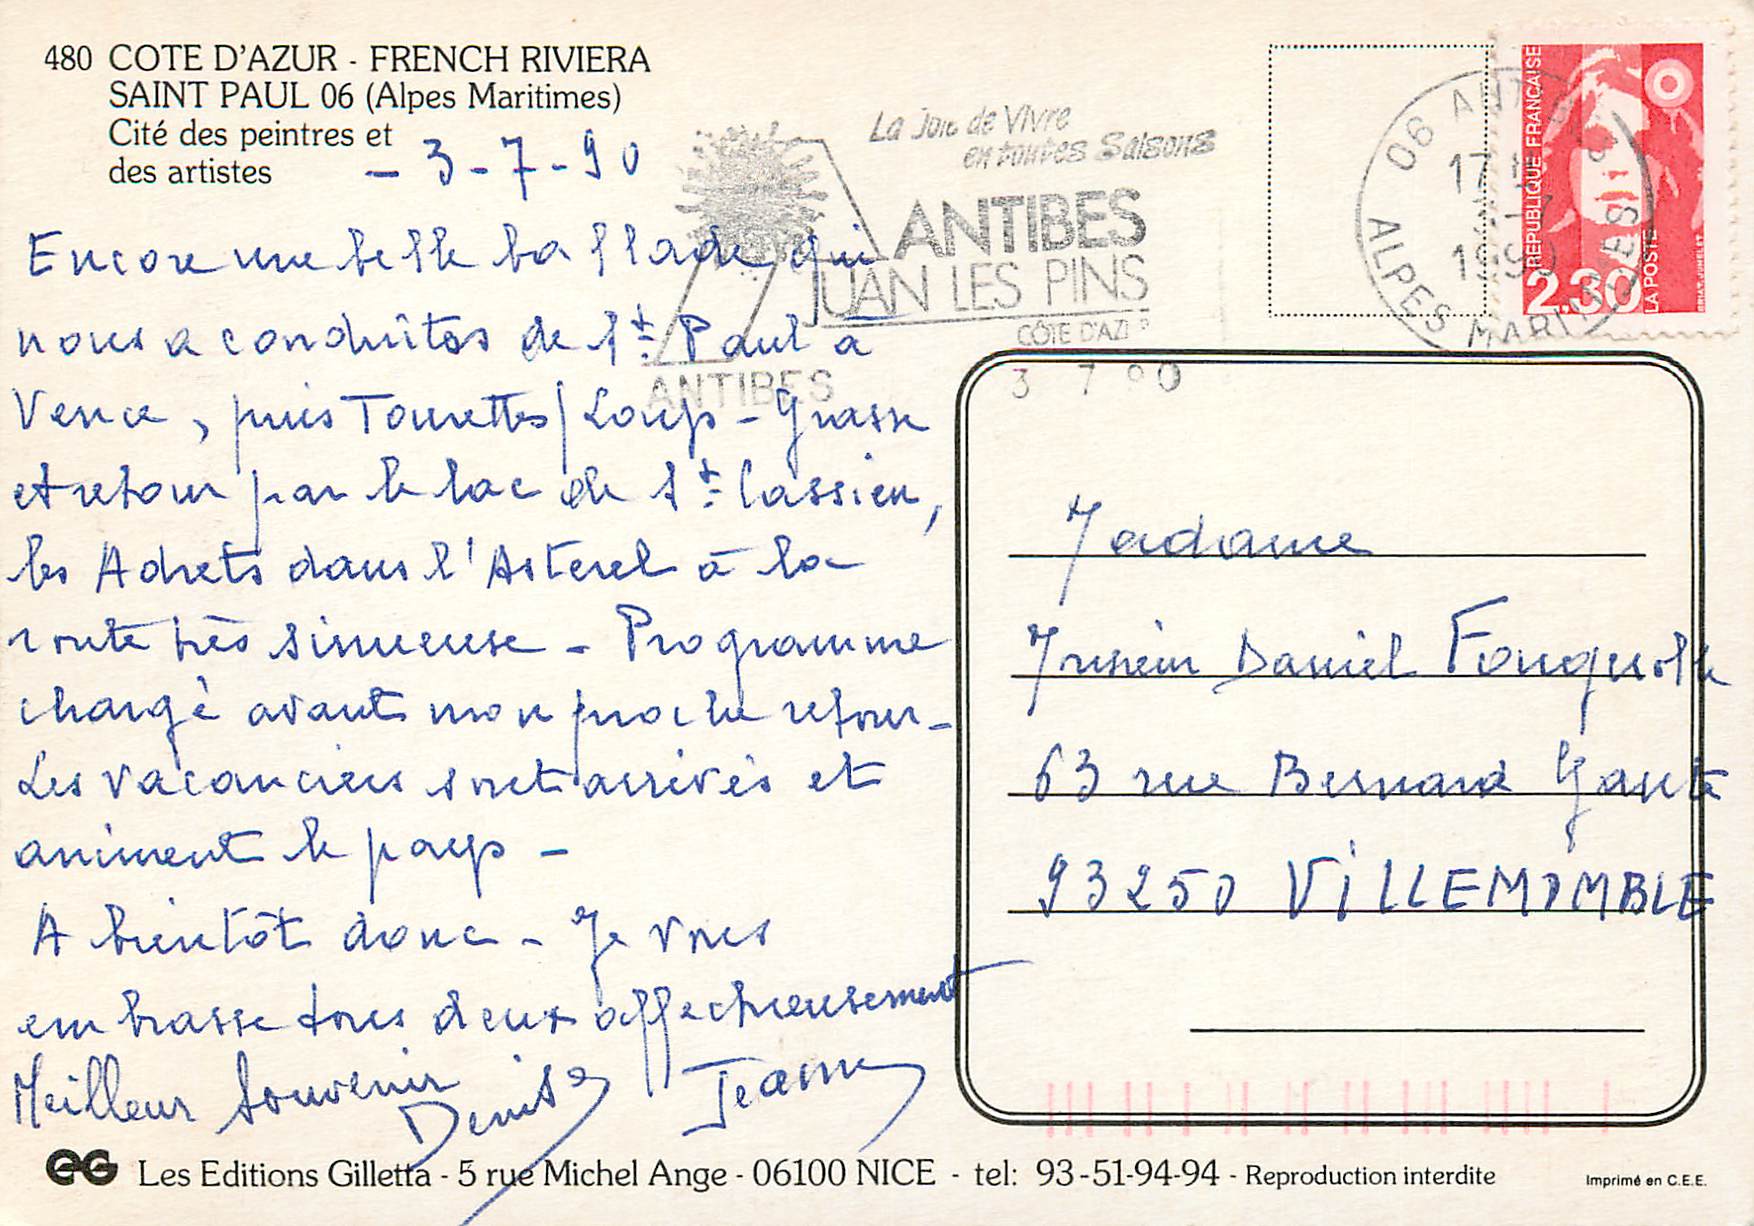 480 COTE D'AZUR - FRENCH RIVIERA
SAINT PAUL 06 (Alpes Maritimes)
Cité des peintres et
des artistes
- 3-7-90
Encore une belle ballade qui
nous a conduites de St Paul à
Vence, puis Tourettes/Loup - Grasse
et retour par le lac de St Cassien,
les Adrets dans l'Asterel à la
route très sinueuse - Programme
chargé avant mon proche retour -
Les vacanciers sont arrivés et
animent le pays -
A bientôt donc - Je vous
embrasse tous deux affectueusement
Meilleur Souvenir
Denise Jeanne
La Joie de Vivre
en toutes Saisons
ANTIBES
JUAN LES PINS
CÔTE D'AZUR
ANTIBES
3 7 90
06 ANTIBES
17 H
1990
ALPES MARITIMES
REPUBLIQUE FRANÇAISE
2.30
LA POSTE
BRIAT JUMELET
Madame
Daniel
63 rue Bernard
93250 VILLEMOMBLE
GG Les Editions Gilletta - 5 rue Michel Ange - 06100 NICE - tel: 93-51-94-94 - Reproduction interdite
Imprimé en C.E.E.